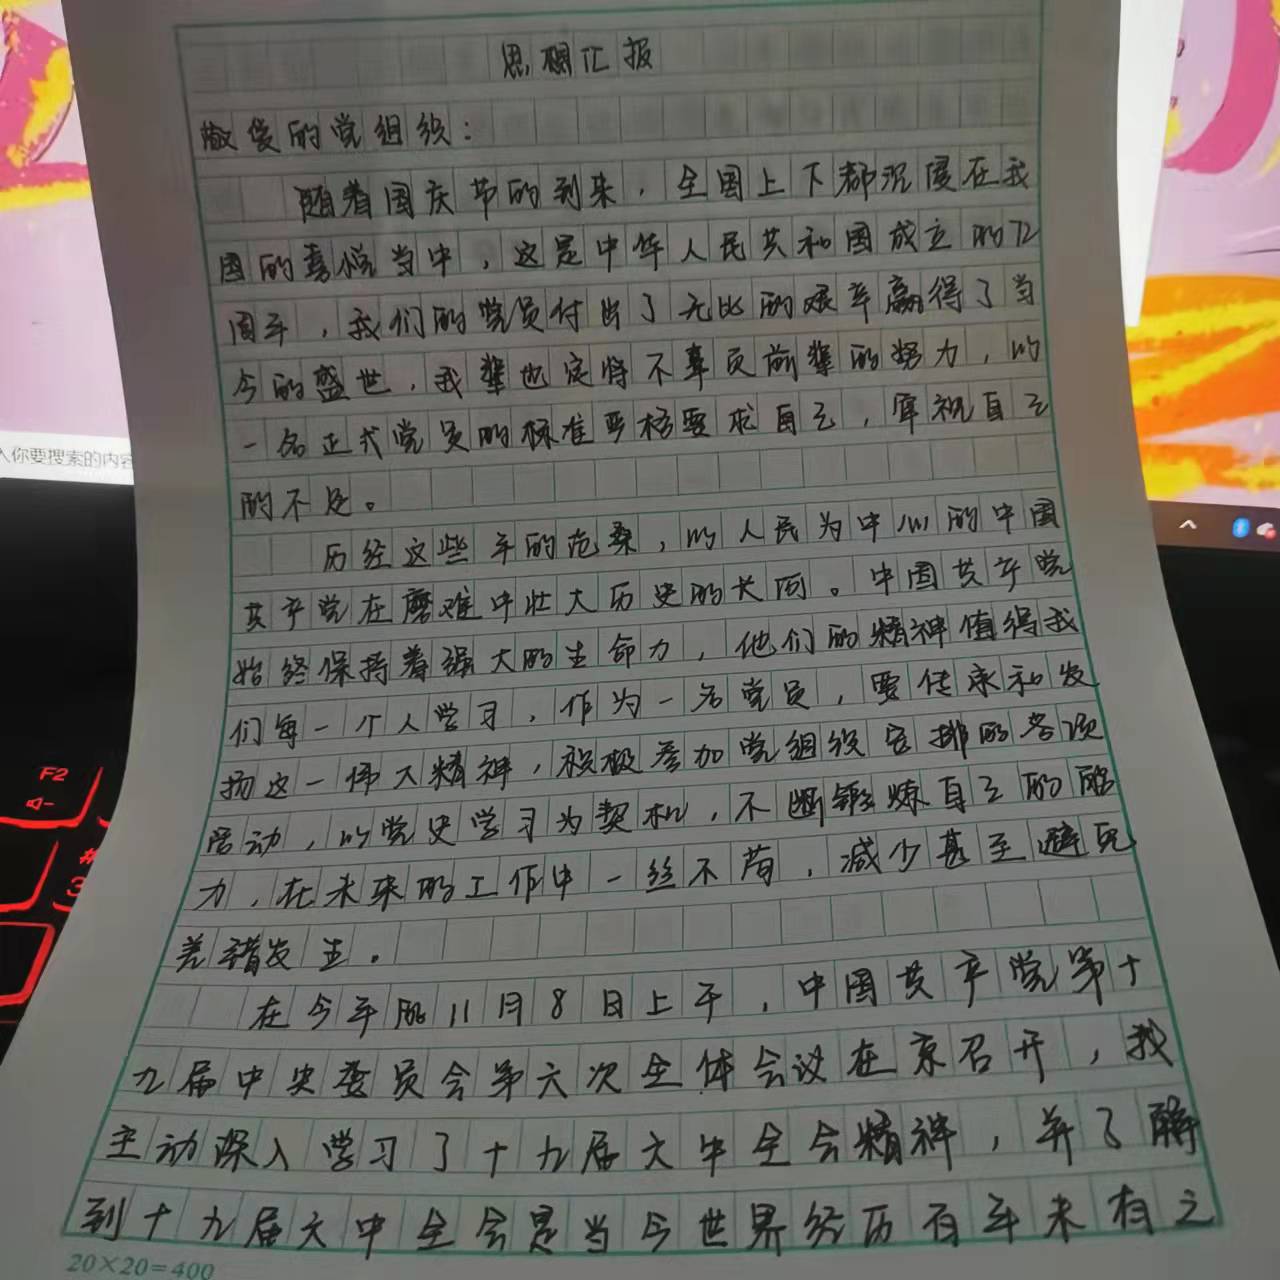 思想汇报
敬爱的党组织：
随着国庆节的到来，全国上下都沉浸在我
国的喜悦当中，这是中华人民共和国成立的72
周年，我们的党员付出了无比的艰辛赢得了当
今的盛世，我辈也定将不辜负前辈的努力，以
一名正式党员的标准严格要求自己，审视自己
的不足。
历经这些年的沧桑，以人民为中心的中国
共产党在磨难中壮大历史的长河。中国共产党
始终保持着强大的生命力，他们的精神值得我
们每一个人学习，作为一名党员，要传承和发
扬这一伟大精神，积极参加党组织安排的各项
活动，以党史学习为契机，不断锻炼自己的能
力，在未来的工作中一丝不苟，减少甚至避免
差错发生。
在今年的11月8日上午，中国共产党第十
九届中央委员会第六次全体会议在京召开，我
主动深入学习了十九届六中全会精神，并了解
到十九届六中全会是当今世界经历百年未有之
20×20=400
入你要搜索的内容
F2
#
3